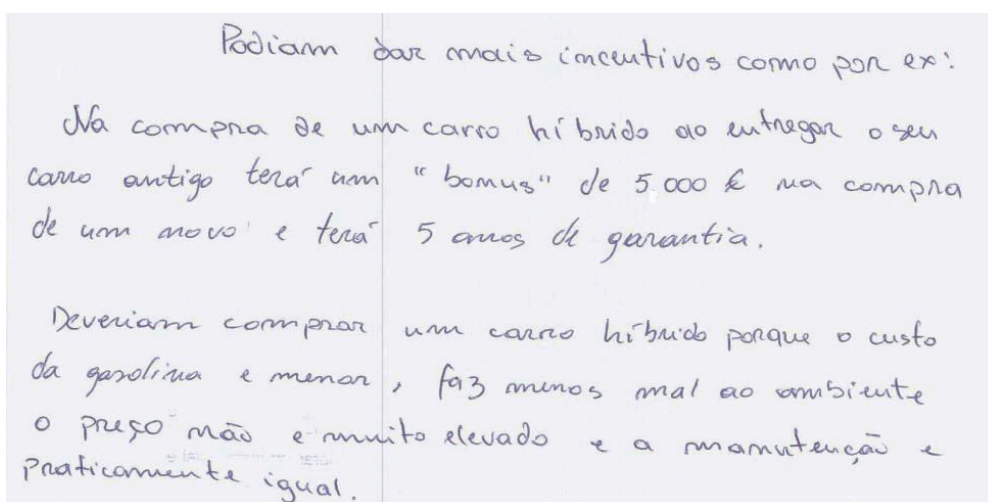 Podiam dar mais incentivos como por ex:
Na compra de um carro híbrido ao entregar o seu
carro antigo terá um "bonus" de 5.000 € na compra
de um novo e terá 5 anos de garantia.
Deveriam comprar um carro híbrido porque o custo
da gasolina e menor, faz menos mal ao ambiente
o preço não e muito elevado e a manutenção e
praticamente igual.